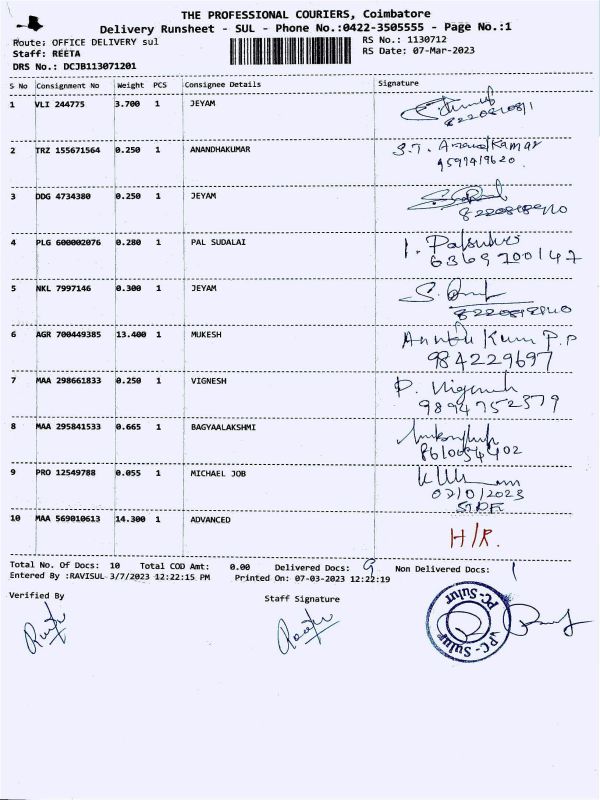 THE PROFESSIONAL COURIERS, Coimbatore
Delivery Runsheet - SUL - Phone No.:0422-3505555 - Page No.:1
Route: OFFICE DELIVERY sul
RS No.: 1130712
Staff: REETA
RS Date: 07-Mar-2023
DRS No.: DCJB113071201
S No Consignment No Weight PCS Consignee Details Signature
1 VLI 244775 3.700 1 JEYAM
2 TRZ 155671564 0.250 1 ANANDHAKUMAR S.T. AnandKamar
9597419620
3 DDG 4734380 0.250 1 JEYAM
4 PLG 600002076 0.280 1 PAL SUDALAI
6369700147
5 NKL 7997146 0.300 1 JEYAM
6 AGR 700449385 13.400 1 MUKESH
984229697
7 MAA 298661833 0.250 1 VIGNESH P. Vignesh
9894752379
8 MAA 295841533 0.665 1 BAGYAALAKSHMI
9 PRO 12549788 0.055 1 MICHAEL JOB
10 MAA 569010613 14.300 1 ADVANCED H/R.
Total No. Of Docs: 10 Total COD Amt: 0.00 Delivered Docs: 9 Non Delivered Docs: 1
Entered By :RAVISUL 3/7/2023 12:22:15 PM Printed On: 07-03-2023 12:22:19
Verified By Staff Signature
PC-Sulur
PC-Sulur